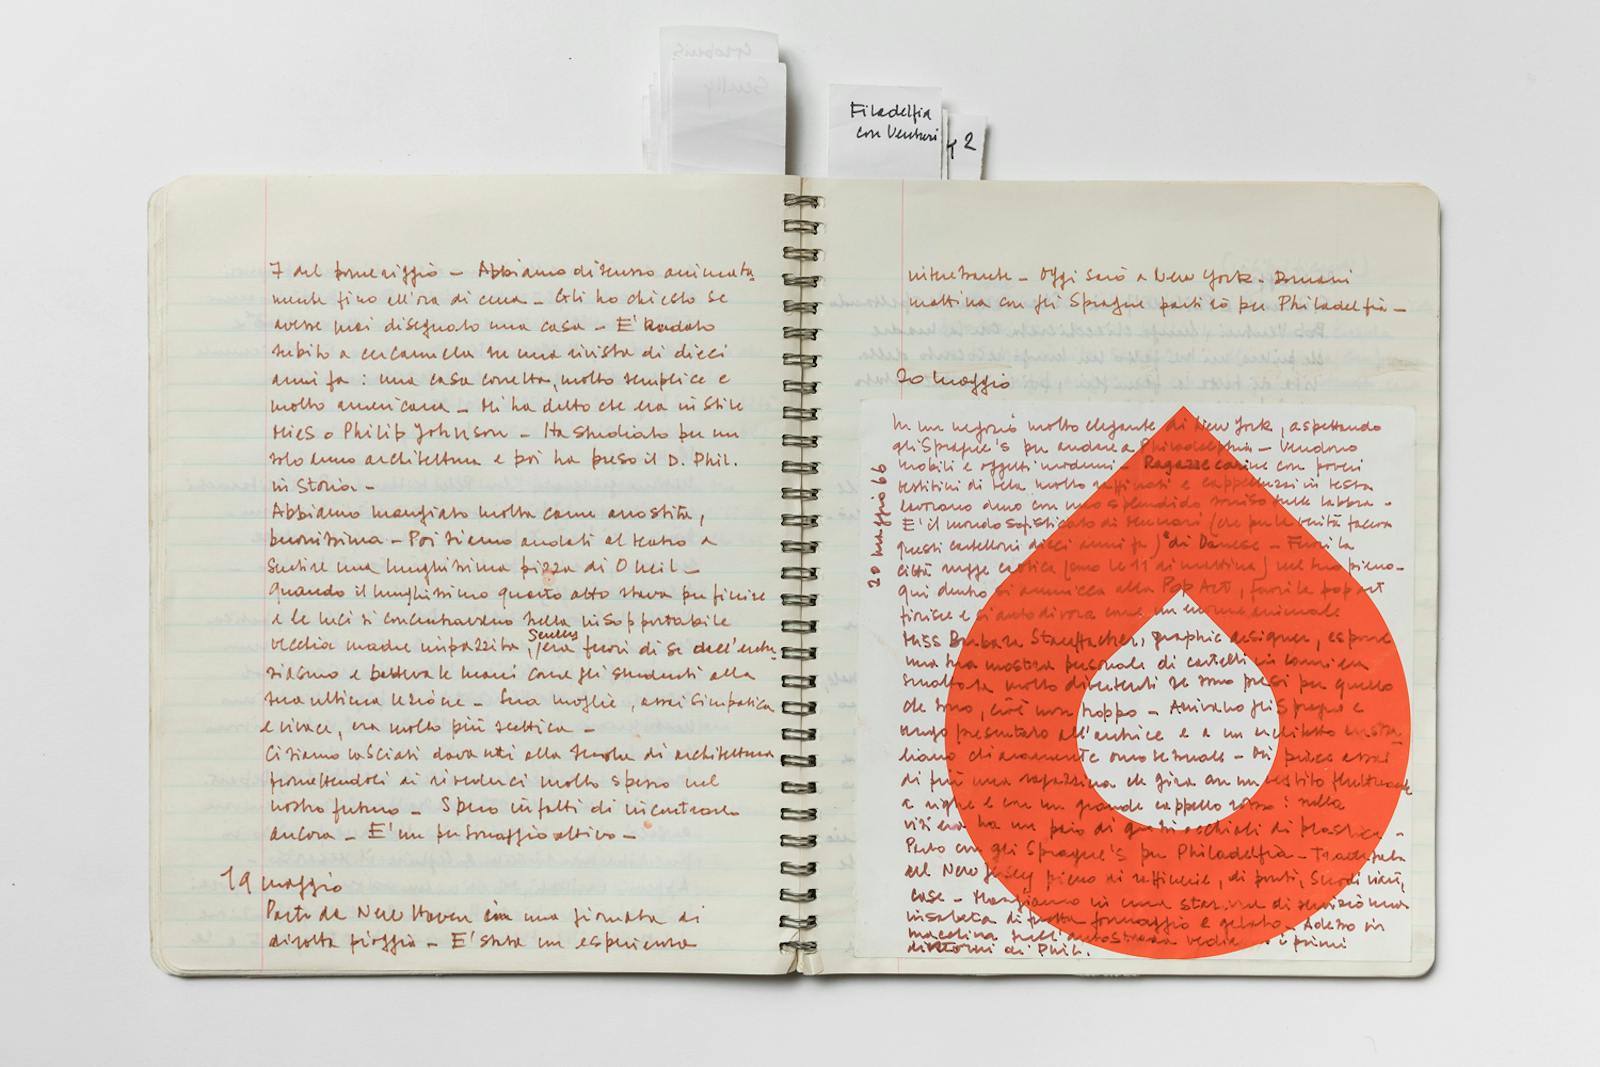 Scully
Filadelfia
con Venturi
2
7 del pomeriggio – Abbiamo discusso animata
mente fino all'ora di cena – Gli ho chiesto se
avesse mai disegnato una casa – E' andato
subito a cercarmela su una rivista di dieci
anni fa : una casa corretta, molto semplice e
molto americana – Mi ha detto che era in stile
Mies o Philip Johnson – Ha studiato per un
solo anno architettura e poi ha preso il D. Phil.
in Storia –
Abbiamo mangiato molta carne arrostita,
buonissima – Poi siamo andati al teatro a
sentire una lunghissima pizza di O Neil –
quando il lunghissimo quarto atto stava per finire
e le luci si concentravano sulla insopportabile
vecchia madre impazzita, Scully era fuori di sé dall'entu
siasmo e batteva le mani come gli studenti alla
sua ultima lezione – Sua moglie, assai simpatica
e vivace, era molto più scettica –
Ci siamo lasciati davanti alla scuola di architettura
promettendoci di rivederci molto spesso nel
nostro futuro – Spero infatti di incontrarlo
ancora – E' un personaggio attivo –
19 maggio
Parto da New Haven con una giornata di
dirotta pioggia – E' stata un esperienza
interessante – Oggi sarò a New York. Domani
mattina con gli Sprague partirò per Philadelfia –
20 maggio
20 maggio 66
In un negozio molto elegante di New York, aspettando
gli Sprague's per andare a Philadelphia – Vendono
mobili e oggetti moderni – Ragazze carine con poveri
vestitini di tela molto raffinati e cappellucci in testa
lavorano con uno splendido sorriso sulle labbra –
E' il mondo sofisticato di Munari (che per la verità faceva
questi cartelloni dieci anni fa) e di Danese – Fuori la
città rugge caotica (sono le 11 di mattina) nel suo pieno –
qui dentro si ammicca alla Pop Art, fuori la pop art
fiorisce e si autodivora come un enorme animale
Miss Barbara Stauffacher, graphic designer, espone
una sua mostra personale di cartelli in lamiera
smaltata molto divertenti se sono presi per quello
che sono, cioè non troppo – Arrivano gli Sprague e
vengo presentato all'autrice e a un architetto austra
liano chiaramente omosessuale – Mi piace assai
di più una ragazzina che gira in un vestito
a righe e con un grande cappello rosso : sulla
ha un paio di occhiali di plastica –
Parto con gli Sprague's per Philadelfia –
nel New Jersey pieno di raffinerie, di ponti,
case – Mangiamo in una stazione di servizio una
insalata di frutta formaggio e gelato – Adesso in
macchina sull'autostrada vedo i primi
dintorni di Phil.